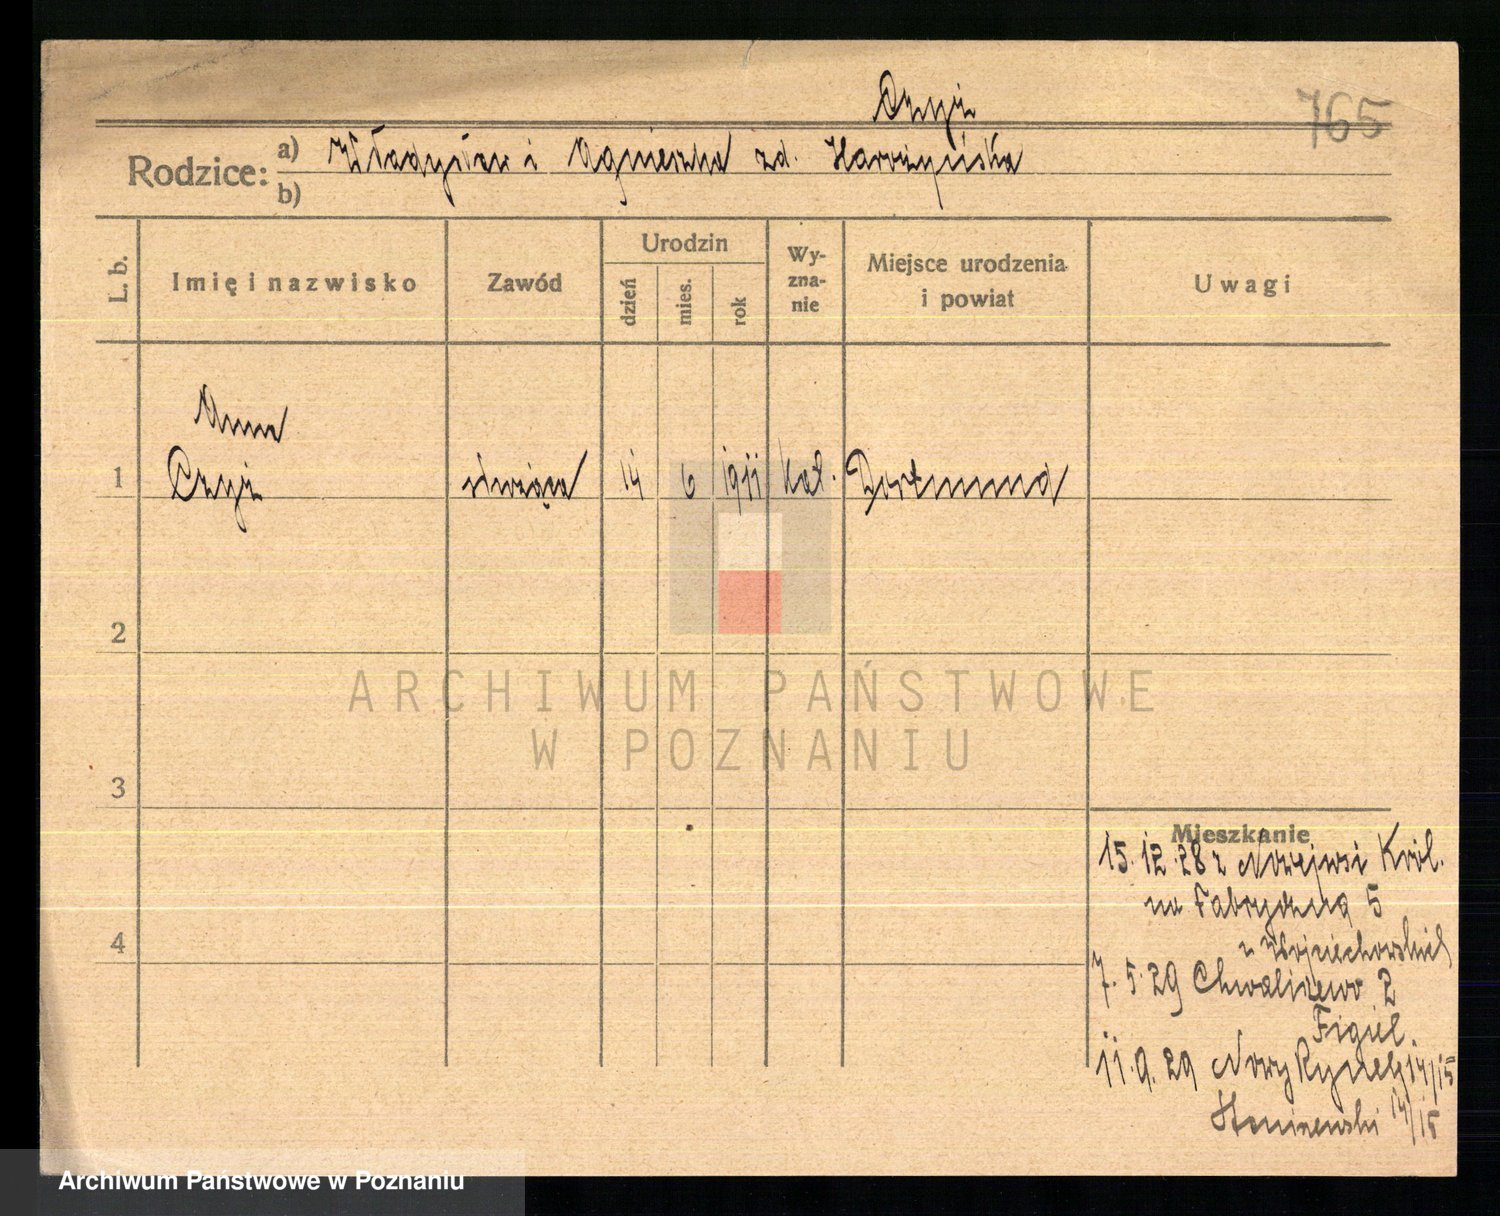 Czyż
765
Rodzice: a) Władysław i Agnieszka zd.
b)
L. b.
Imię i nazwisko
Zawód
Urodzin
dzień
mies.
rok
Wy-
zna-
nie
Miejsce urodzenia
i powiat
Uwagi
Anna
1 Czyż służąca 14 6 1911 kat. Dortmund
2
ARCHIWUM PAŃSTWOWE
W POZNANIU
3
Mieszkanie
15.12.28 z Król.
na Fabryczną 5
u Wojciechowskich
4
7.5.29 Chwaliszewo 2
Figiel
11.9.29 Nowy Rynek 14/15
14/15
Archiwum Państwowe w Poznaniu